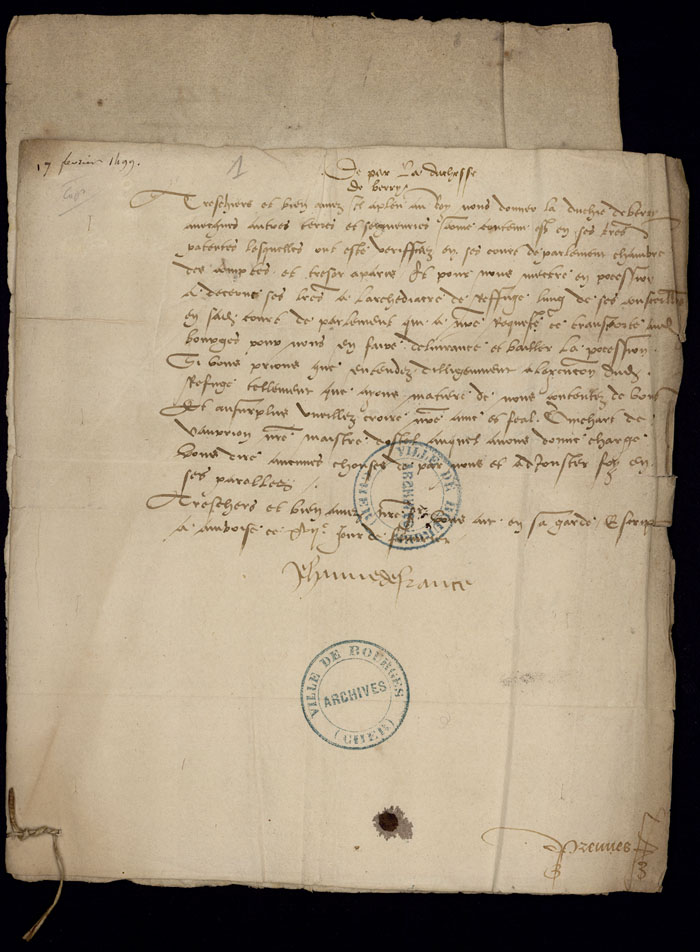 17 fevrier 1499.
1
De par La duchesse
de berry
Treschiers et bien amez Il a pleu au Roy nous donner la duchie de berry
avecques autres terres et seigneuries comme contenu est en ses lres
patentes lesquelles ont este veriffiez en ses cours de parlement chambre
des comptes et tresor a paris Et pour nous mectre en pocession
a decerne ses lres a larchediacre de Reffuge lung de ses conseilliers
en sad court de parlement qui a nre Requeste se transporte aud
bourges pour nous en faire delivrance et bailler la pocession
Si vous prions que entendez dilligemment a lexecucion dud
Refuge tellement que ayons matiere de nous contenter de vous
Et au surplus vueillez croire nre ame et feal Guichart de
vauprion nre maistre dostel auquel avons donne charge
vous dire aucunes chouses de par nous et adjouster foy en
ses parolles
Treschers et bien amez nre sr vous ait en sa garde Escript
a amboise ce jour de
Jehanne de france
VILLE DE BOURGES
ARCHIVES
(CHER)
VILLE DE BOURGES
ARCHIVES
(CHER)
Preunes